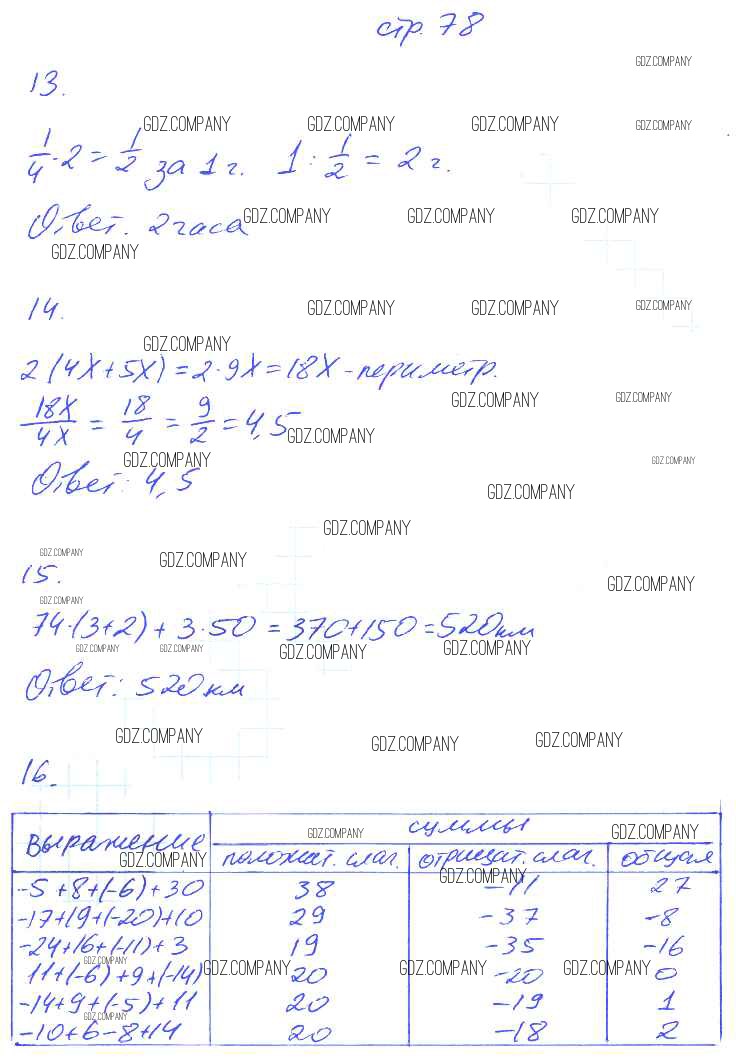 стр. 78
GDZ.COMPANY
13.
GDZ.COMPANY GDZ.COMPANY GDZ.COMPANY GDZ.COMPANY
1/4 · 2 = 1/2 за 1 ч. 1 : 1/2 = 2 ч.
Ответ. 2 часа
GDZ.COMPANY GDZ.COMPANY GDZ.COMPANY
GDZ.COMPANY
14.
GDZ.COMPANY GDZ.COMPANY GDZ.COMPANY
GDZ.COMPANY
2(4x+5x) = 2·9x = 18x - периметр.
GDZ.COMPANY GDZ.COMPANY
18x/4x = 18/4 = 9/2 = 4,5
GDZ.COMPANY
GDZ.COMPANY GDZ.COMPANY
Ответ: 4,5
GDZ.COMPANY
GDZ.COMPANY
GDZ.COMPANY GDZ.COMPANY
15.
GDZ.COMPANY
GDZ.COMPANY
74·(3+2) + 3·50 = 370+150 = 520 км
GDZ.COMPANY GDZ.COMPANY GDZ.COMPANY GDZ.COMPANY
Ответ: 520 км
GDZ.COMPANY GDZ.COMPANY GDZ.COMPANY
16.
Выражение суммы
GDZ.COMPANY GDZ.COMPANY
GDZ.COMPANY
положит. слаг. отрицат. слаг. общая
GDZ.COMPANY
-5+8+(-6)+30 38 -11 27
-17+19+(-20)+10 29 -37 -8
-24+16+(-11)+3 19 -35 -16
GDZ.COMPANY
11+(-6)+9+(-14) 20 -20 0
GDZ.COMPANY GDZ.COMPANY GDZ.COMPANY
-14+9+(-5)+11 20 -19 1
GDZ.COMPANY
-10+6-8+14 20 -18 2